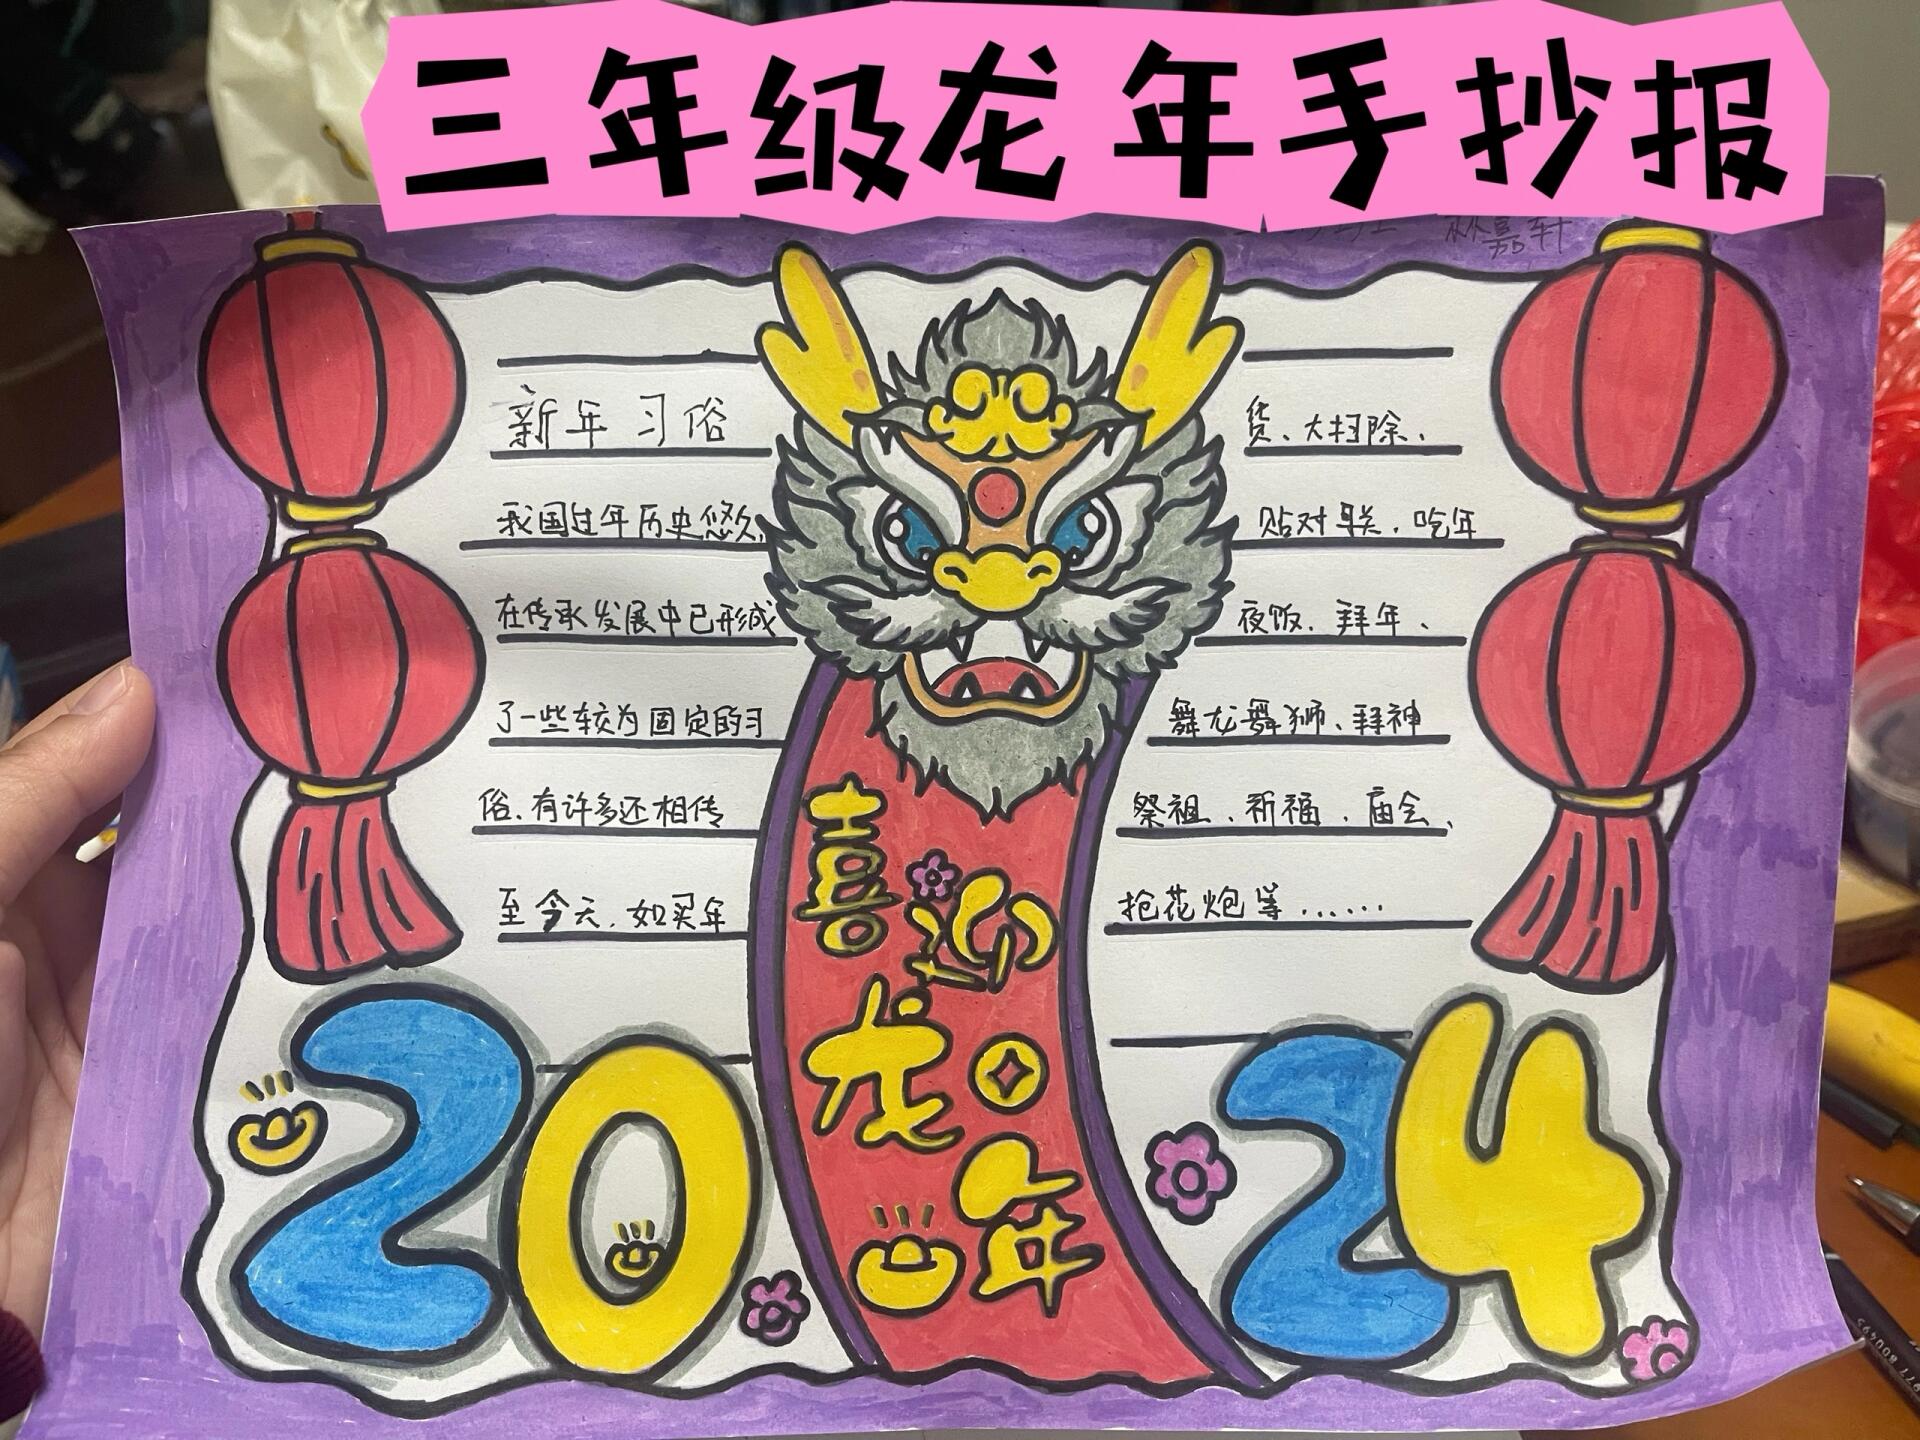 三年级龙年手抄报
林嘉轩
新年习俗
我国过年历史悠久,
在传承发展中已形成
了一些较为固定的习
俗、有许多还相传
至今天,如买年
货、大扫除、
贴对联、吃年
夜饭、拜年、
舞龙舞狮、拜神
祭祖、祈福、庙会、
抢花炮等……
喜迎
龙年
2024